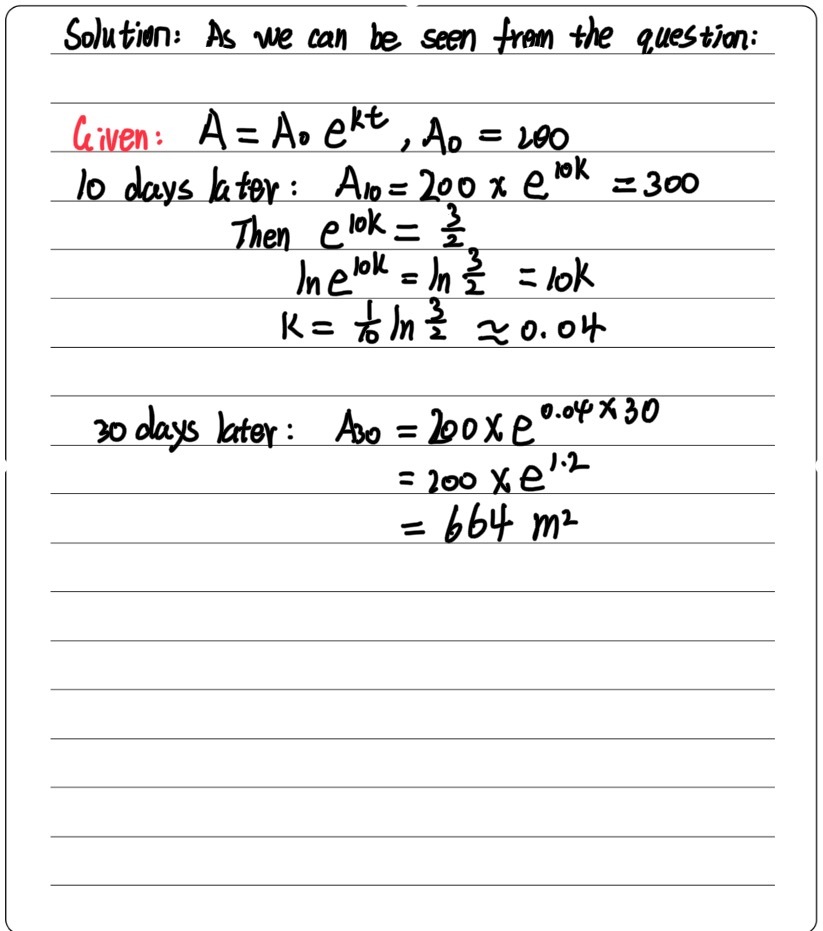 Solution: As we can be seen from the question:
Given: A = A₀ e^{kt}, A₀ = 200
10 days later: A₁₀ = 200 × e^{10k} = 300
Then e^{10k} = 3/2
ln e^{10k} = ln 3/2 = 10k
K = 1/10 ln 3/2 ≈ 0.04
30 days later: A₃₀ = 200 × e^{0.04×30}
= 200 × e^{1.2}
= 664 m²